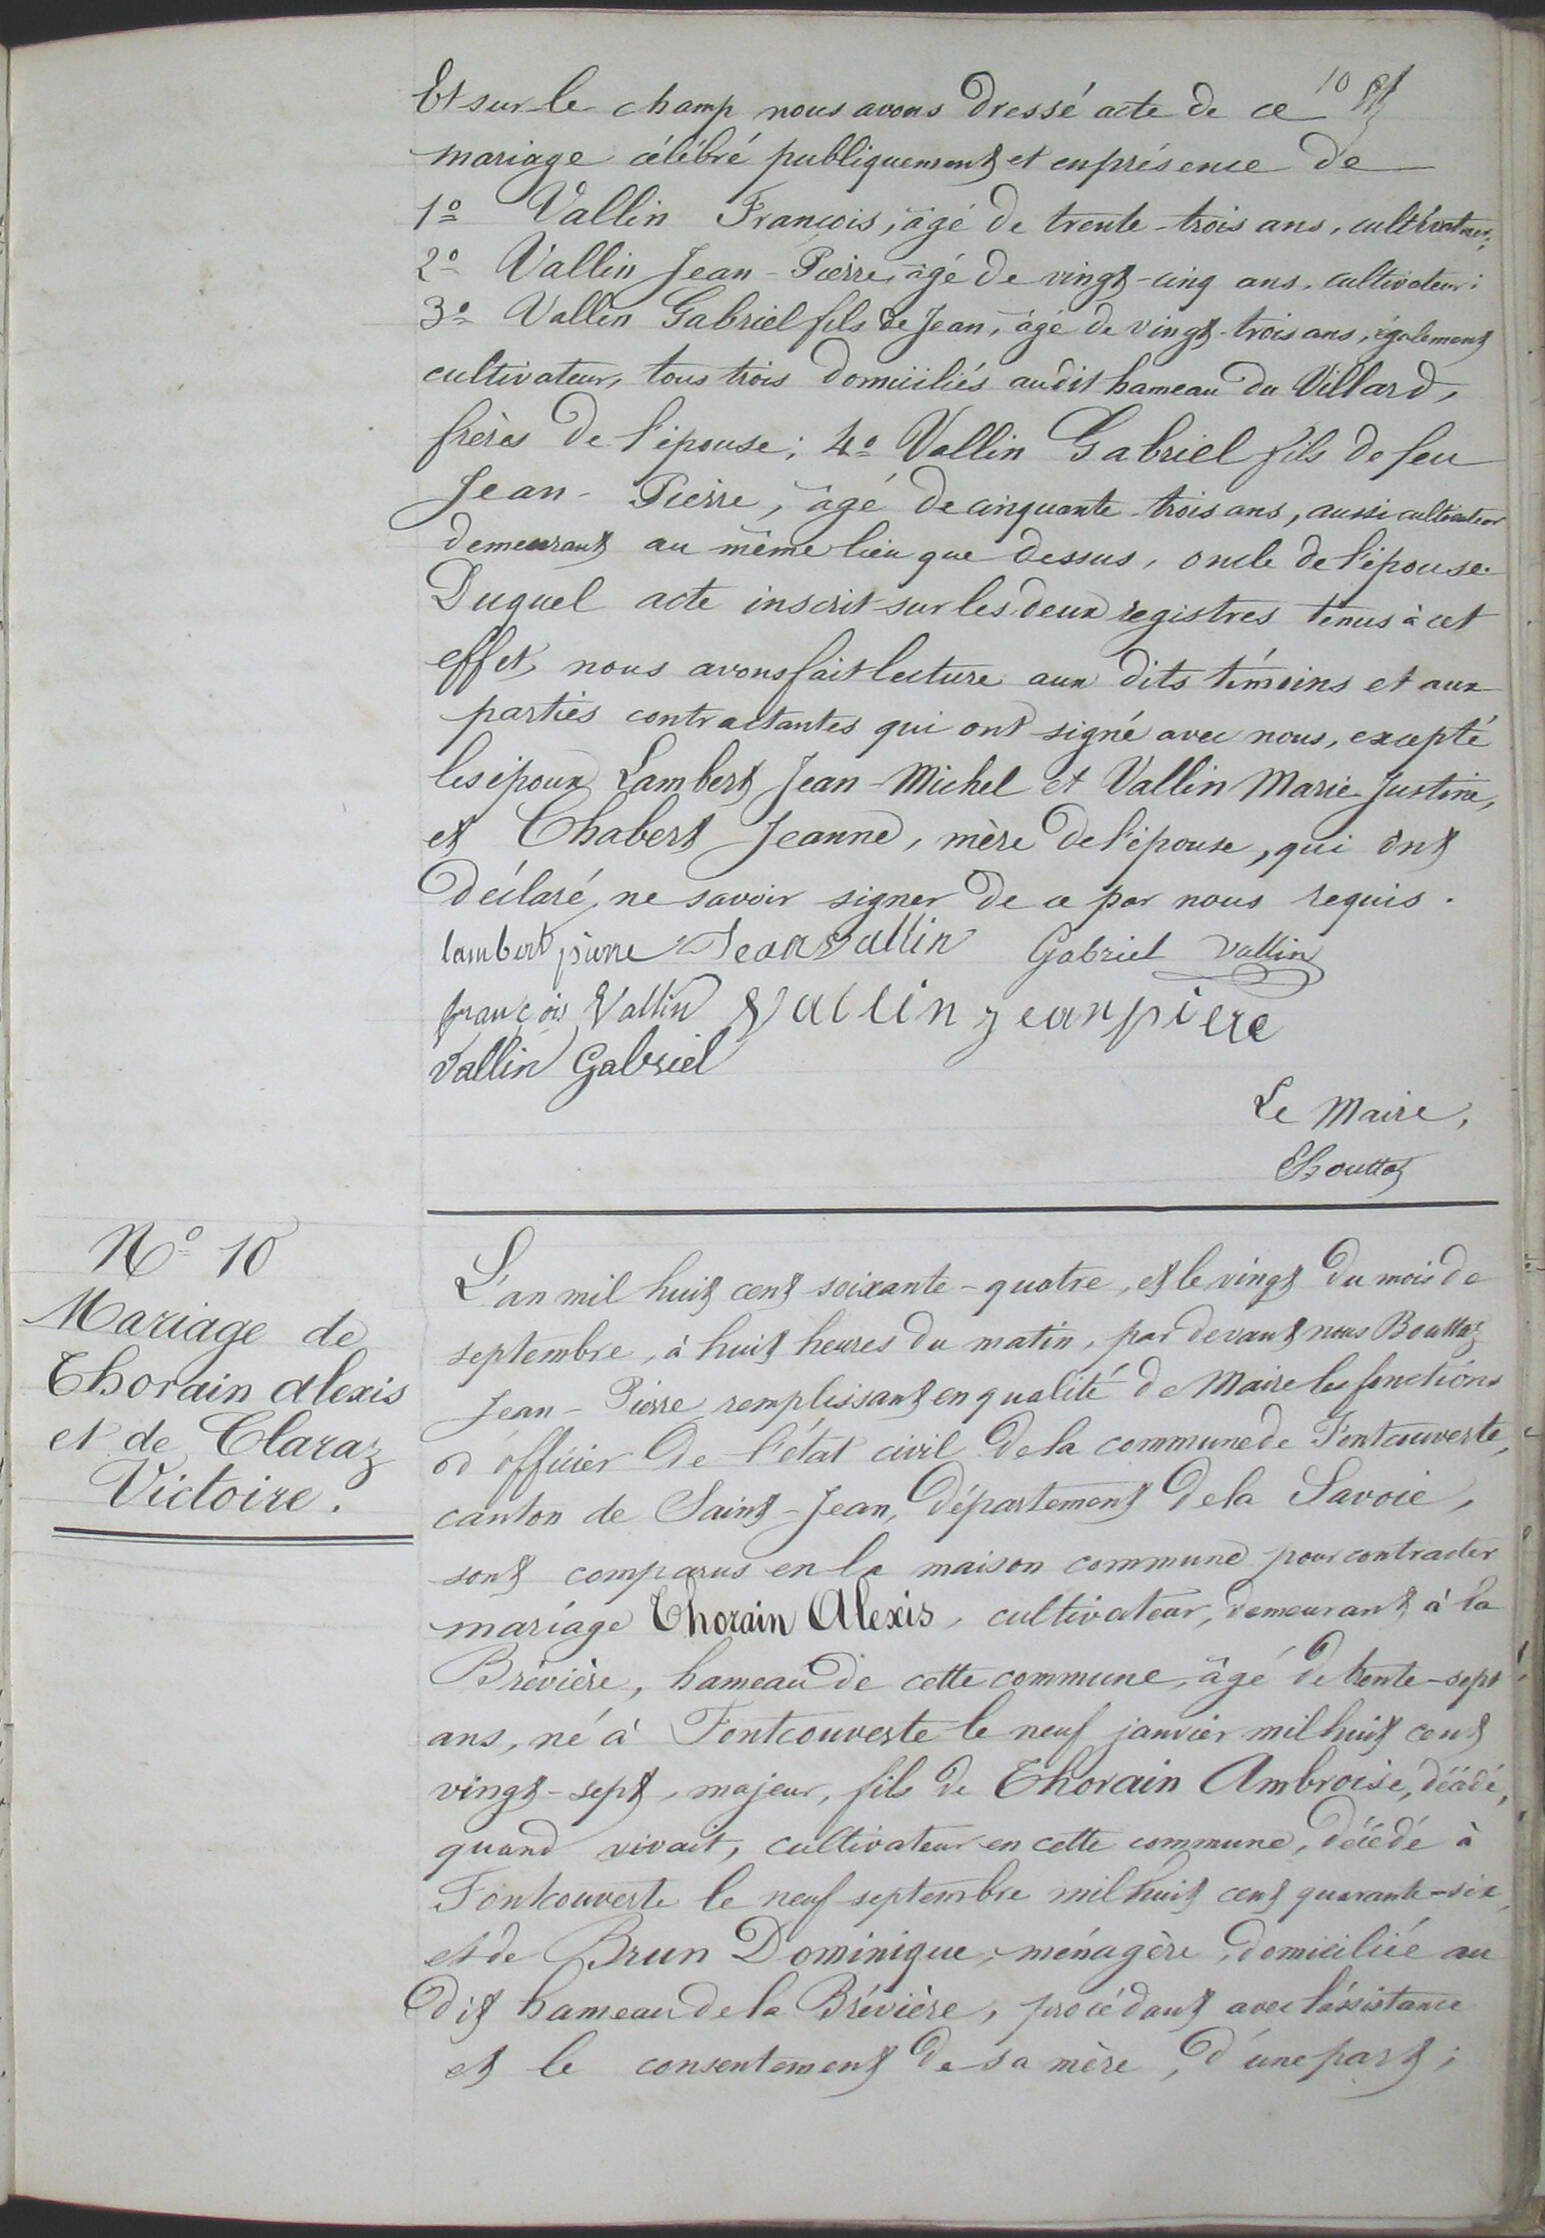 10
Et sur le champ nous avons dressé acte de ce
mariage célébré publiquement et en présence de
1º Vallin François, âgé de trente-trois ans, cultivateur;
2º Vallin Jean-Pierre, âgé de vingt-cinq ans, cultivateur;
3º Vallin Gabriel fils de Jean, âgé de vingt-trois ans, également
cultivateur, tous trois domiciliés audit hameau du Villard,
frères de l'épouse; 4º Vallin Gabriel fils de feu
Jean-Pierre, âgé de cinquante-trois ans, aussi cultivateur
demeurant au même lieu que dessus, oncle de l'épouse.
Duquel acte inscrit sur les deux registres tenus à cet
effet, nous avons fait lecture aux dits témoins et aux
parties contractantes qui ont signé avec nous, excepté
les époux Lambert Jean-Michel et Vallin Marie Justine,
et Chabert Jeanne, mère de l'épouse, qui ont
déclaré ne savoir signer de ce par nous requis.
lambert pierre Jean vallin Gabriel Vallin
françois Vallin Vallin jeanpiere
Vallin Gabriel
Le Maire,
Bouttaz
Nº 10
Mariage de
Thorain Alexis
et de Claraz
Victoire.
L'an mil huit cent soixante-quatre, et le vingt du mois de
septembre, à huit heures du matin, par devant nous Bouttaz
Jean-Pierre remplissant en qualité de Maire les fonctions
d'officier de l'état civil de la commune de Fontcouverte,
canton de Saint-Jean, département de la Savoie,
sont comparus en la maison commune pour contracter
mariage Thorain Alexis, cultivateur, demeurant à la
Brévière, hameau de cette commune, âgé de trente-sept
ans, né à Fontcouverte le neuf janvier mil huit cent
vingt-sept, majeur, fils de Thorain Ambroise, décédé,
quand vivait, cultivateur en cette commune, décédé à
Fontcouverte le neuf septembre mil huit cent quarante-six,
et de Brun Dominique, ménagère, domiciliée au
dit hameau de la Brévière, procédant avec l'assistance
et le consentement de sa mère, d'une part;